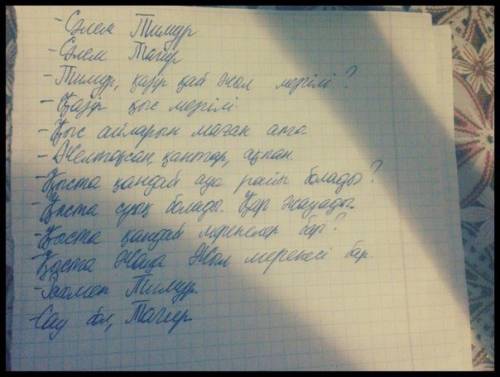 - Сәлем Тимур
- Сәлем Тагир
- Тимур, қазір қай жыл мезгілі?
- Қазір қыс мезгілі
- Қыс айларын маған ата
- Желтоқсан, қаңтар, ақпан.
- Қыста қандай ауа райы болады?
- Қыста суық болады. Қар жауады.
- Қыста қандай мерекелер бар?
Қыста Жаңа Жыл мерекесі бар.
- Рахмет Тимур
- Сау бол, Тагир